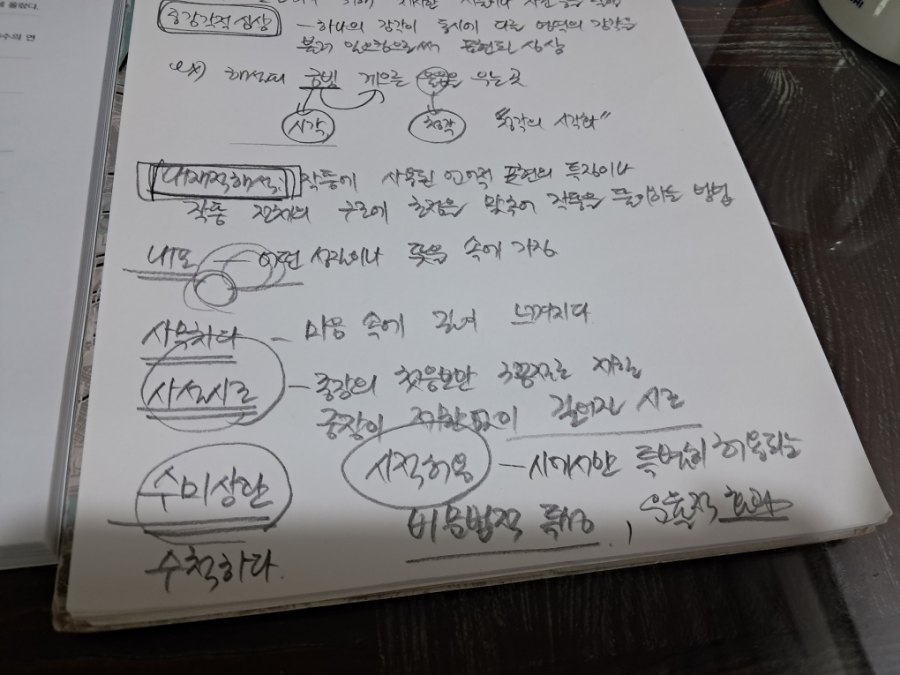 공감각적 심상 - 하나의 감각이 동시에 다른 영역의 감각을
불러 일으킴으로써 표현된 심상
ex) 해설피 금빛 게으른 울음을 우는 곳
시각 청각 "청각의 시각화"
내재적해석: 작품에 사용된 언어적 표현의 특징이나
작품 전체의 구조에 초점을 맞추어 작품을 즐기하는 방법
내포 - 어떤 성질이나 뜻을 속에 가짐
사무치다 - 마음 속에 깊이 느껴지다
사설시조 - 종장의 첫음보만 3글자로 제한
중장이 제한없이 길어진 시조
수미상관 시적허용 - 시에서만 특별히 허용되는
비문법적 특성, 운율적 효과
수척하다.